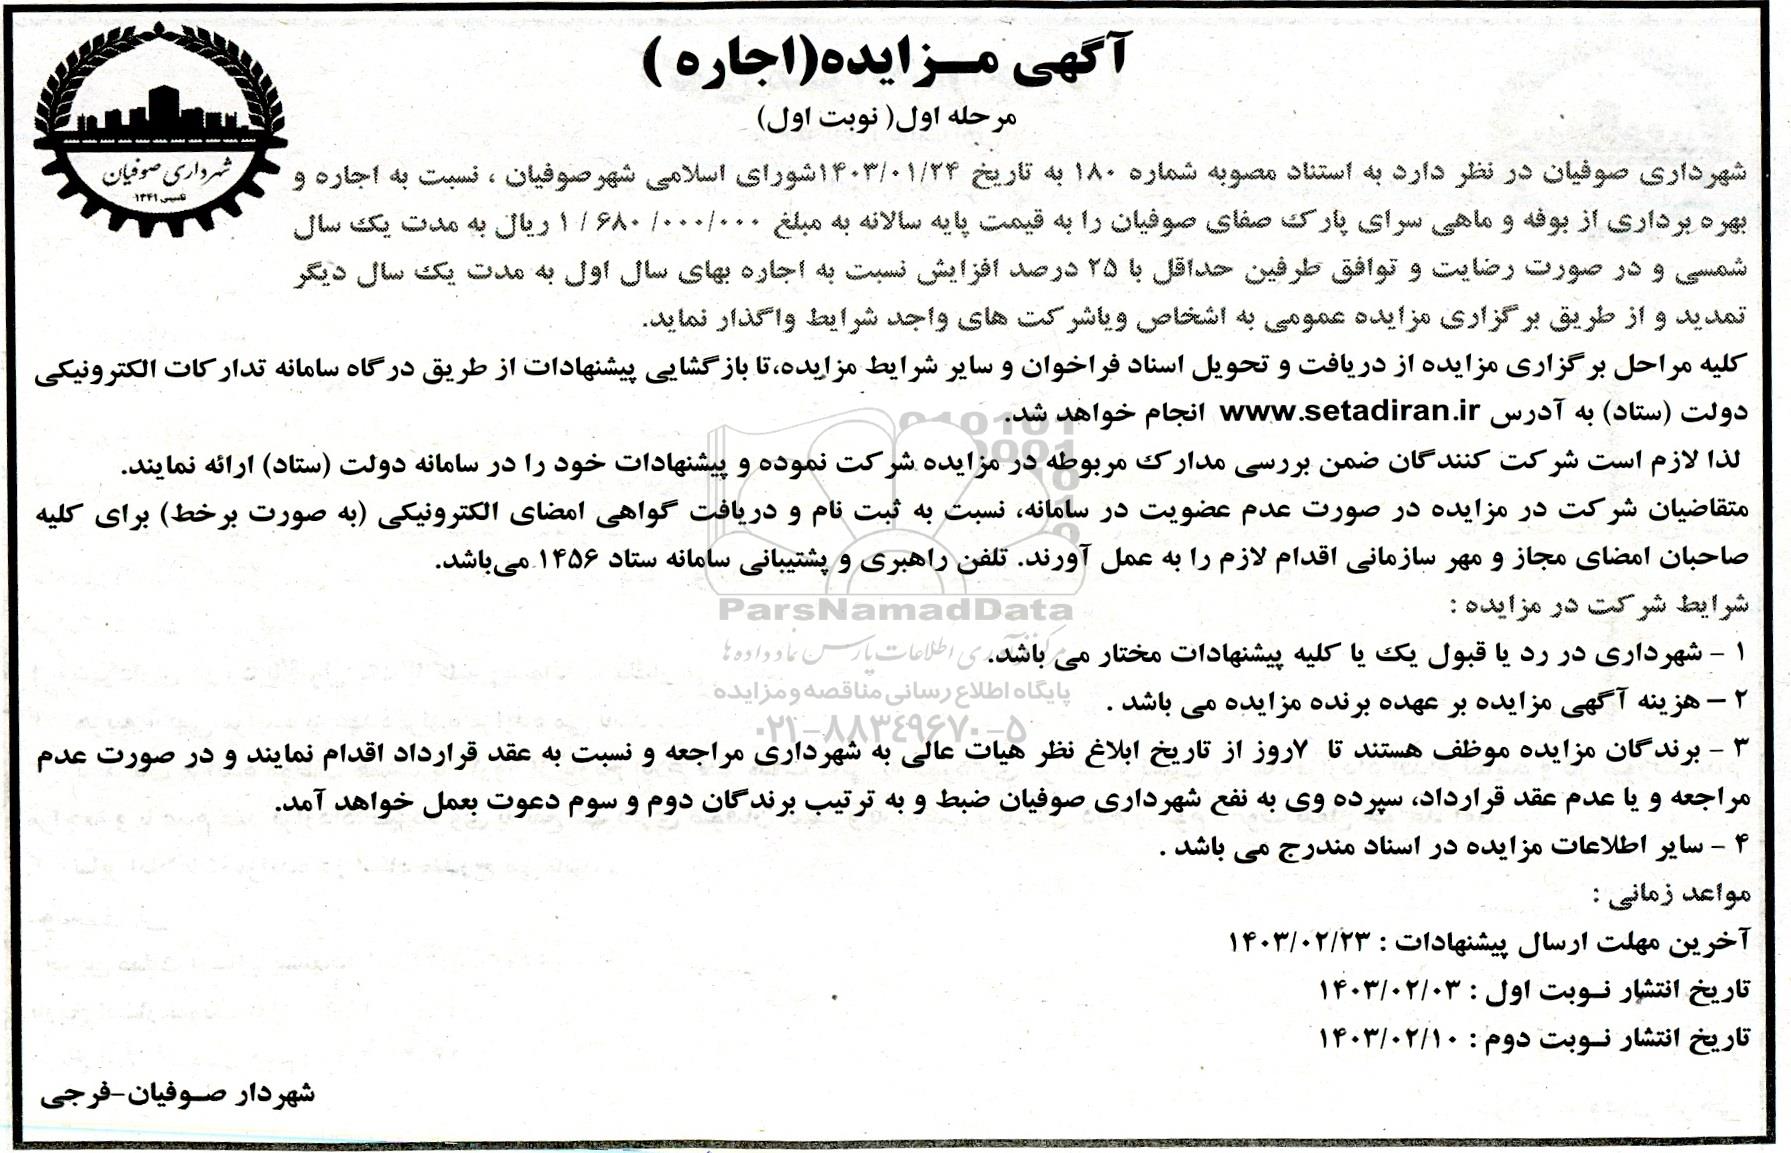 آگهی مـــزایده(اجاره )
مرحله اول( نوبت اول)
شهرداری صوفیان
تاسیس ۱۳۴۱
شهرداری صوفیان در نظر دارد به استناد مصوبه شماره ۱۸۰ به تاریخ ۱۴۰۳/۰۱/۲۴شورای اسلامی شهرصوفیان ، نسبت به اجاره و
بهره برداری از بوفه و ماهی سرای پارک صفای صوفیان را به قیمت پایه سالانه به مبلغ ۰۰۰/۰۰۰/ ۶۸۰ / ۱ ریال به مدت یک سال
شمسی و در صورت رضایت و توافق طرفین حداقل با ۲۵ درصد افزایش نسبت به اجاره بهای سال اول به مدت یک سال دیگر
تمدید و از طریق برگزاری مزایده عمومی به اشخاص ویاشرکت های واجد شرایط واگذار نماید.
کلیه مراحل برگزاری مزایده از دریافت و تحویل اسناد فراخوان و سایر شرایط مزایده،تا بازگشایی پیشنهادات از طریق درگاه سامانه تدارکات الکترونیکی
دولت (ستاد) به آدرس www.setadiran.ir انجام خواهد شد.
لذا لازم است شرکت کنندگان ضمن بررسی مدارک مربوطه در مزایده شرکت نموده و پیشنهادات خود را در سامانه دولت (ستاد) ارائه نمایند.
متقاضیان شرکت در مزایده در صورت عدم عضویت در سامانه، نسبت به ثبت نام و دریافت گواهی امضای الکترونیکی (به صورت برخط) برای کلیه
صاحبان امضای مجاز و مهر سازمانی اقدام لازم را به عمل آورند. تلفن راهبری و پشتیبانی سامانه ستاد ۱۴۵۶ می‌باشد.
شرایط شرکت در مزایده :
۱ - شهرداری در رد یا قبول یک یا کلیه پیشنهادات مختار می باشد.
۲ – هزینه آگهی مزایده بر عهده برنده مزایده می باشد .
۳ - برندگان مزایده موظف هستند تا ۷روز از تاریخ ابلاغ نظر هیات عالی به شهرداری مراجعه و نسبت به عقد قرارداد اقدام نمایند و در صورت عدم
مراجعه و یا عدم عقد قرارداد، سپرده وی به نفع شهرداری صوفیان ضبط و به ترتیب برندگان دوم و سوم دعوت بعمل خواهد آمد.
۴ - سایر اطلاعات مزایده در اسناد مندرج می باشد .
مواعد زمانی :
آخرین مهلت ارسال پیشنهادات : ۱۴۰۳/۰۲/۲۳
تاریخ انتشار نـوبت اول : ۱۴۰۳/۰۲/۰۳
تاریخ انتشار نـوبت دوم : ۱۴۰۳/۰۲/۱۰
شهردار صـوفیان-فرجی
ParsNamadData
مرکز فن‌آوری اطلاعات پارس نماد داده‌ها
پایگاه اطلاع رسانی مناقصه و مزایده
۰۲۱-۸۸۳۴۹۶۷۰-۵